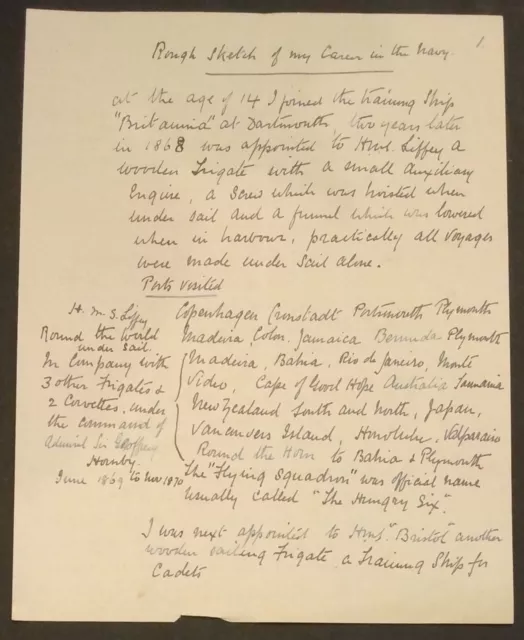 1
Rough Sketch of my Career in the Navy.
at the age of 14 I joined the training Ship
"Britannia" at Dartmouth, two years later
in 1868 was appointed to H.M.S. Liffey a
wooden Frigate with a small Auxiliary
Engine, a Screw which was hoisted when
under sail and a funnel which was lowered
when in harbour, practically all voyages
were made under Sail alone.
Ports visited
Copenhagen Cronstadt Portsmouth Plymouth
Madeira, Colon. Jamaica Bermuda Plymouth
H.M.S. Liffey
Round the World
under Sail.
In Company with
3 other Frigates &
2 Corvettes, under
the command of
Admiral Sir Geoffrey
Hornby.
June 1869 to Nov 1870
Madeira, Bahia, Rio de Janeiro, Monte
Video, Cape of Good Hope Australia Tasmania
New Zealand South and North, Japan,
Vancouvers Island, Honolulu, Valparaiso
Round the Horn to Bahia & Plymouth
The "Flying Squadron" was official name
usually called "The Hungry Six".
I was next appointed to H.M.S. Bristol another
wooden sailing Frigate a Training Ship for
Cadets